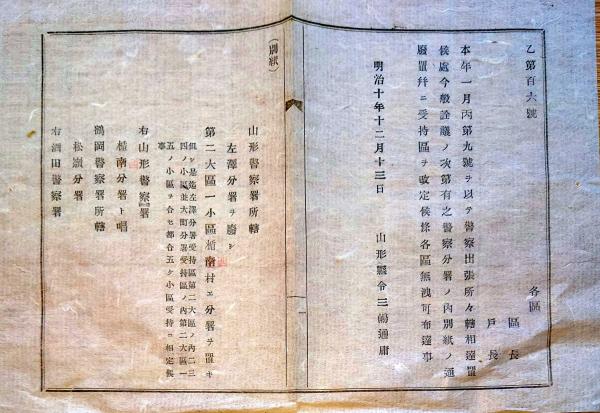 乙第百六號
各區
區長
戶長
本年一月丙第九號ヲ以テ警察出張所々轄相達置
候處今般詮議ノ次第有之警察分署ノ內別紙ノ通
廢置幷ニ受持區ヲ改定候條各區無洩可布達事
明治十年十二月十三日
山形縣令三島通庸
(別紙)
山形警察署所轄
左澤分署ヲ廢シ
第二大區一小區楯南村エ分署ヲ置キ
但シ是迄左澤分署受持區第二大區ノ內二三
四ノ小區並大町分署受持區ノ內第二大區一
五ノ小區ヲ合セ都合五ケ小區受持ニ相定候
事
右山形警察署
楯南分署ト唱
鶴岡警察署所轄
松嶺分署
右酒田警察署